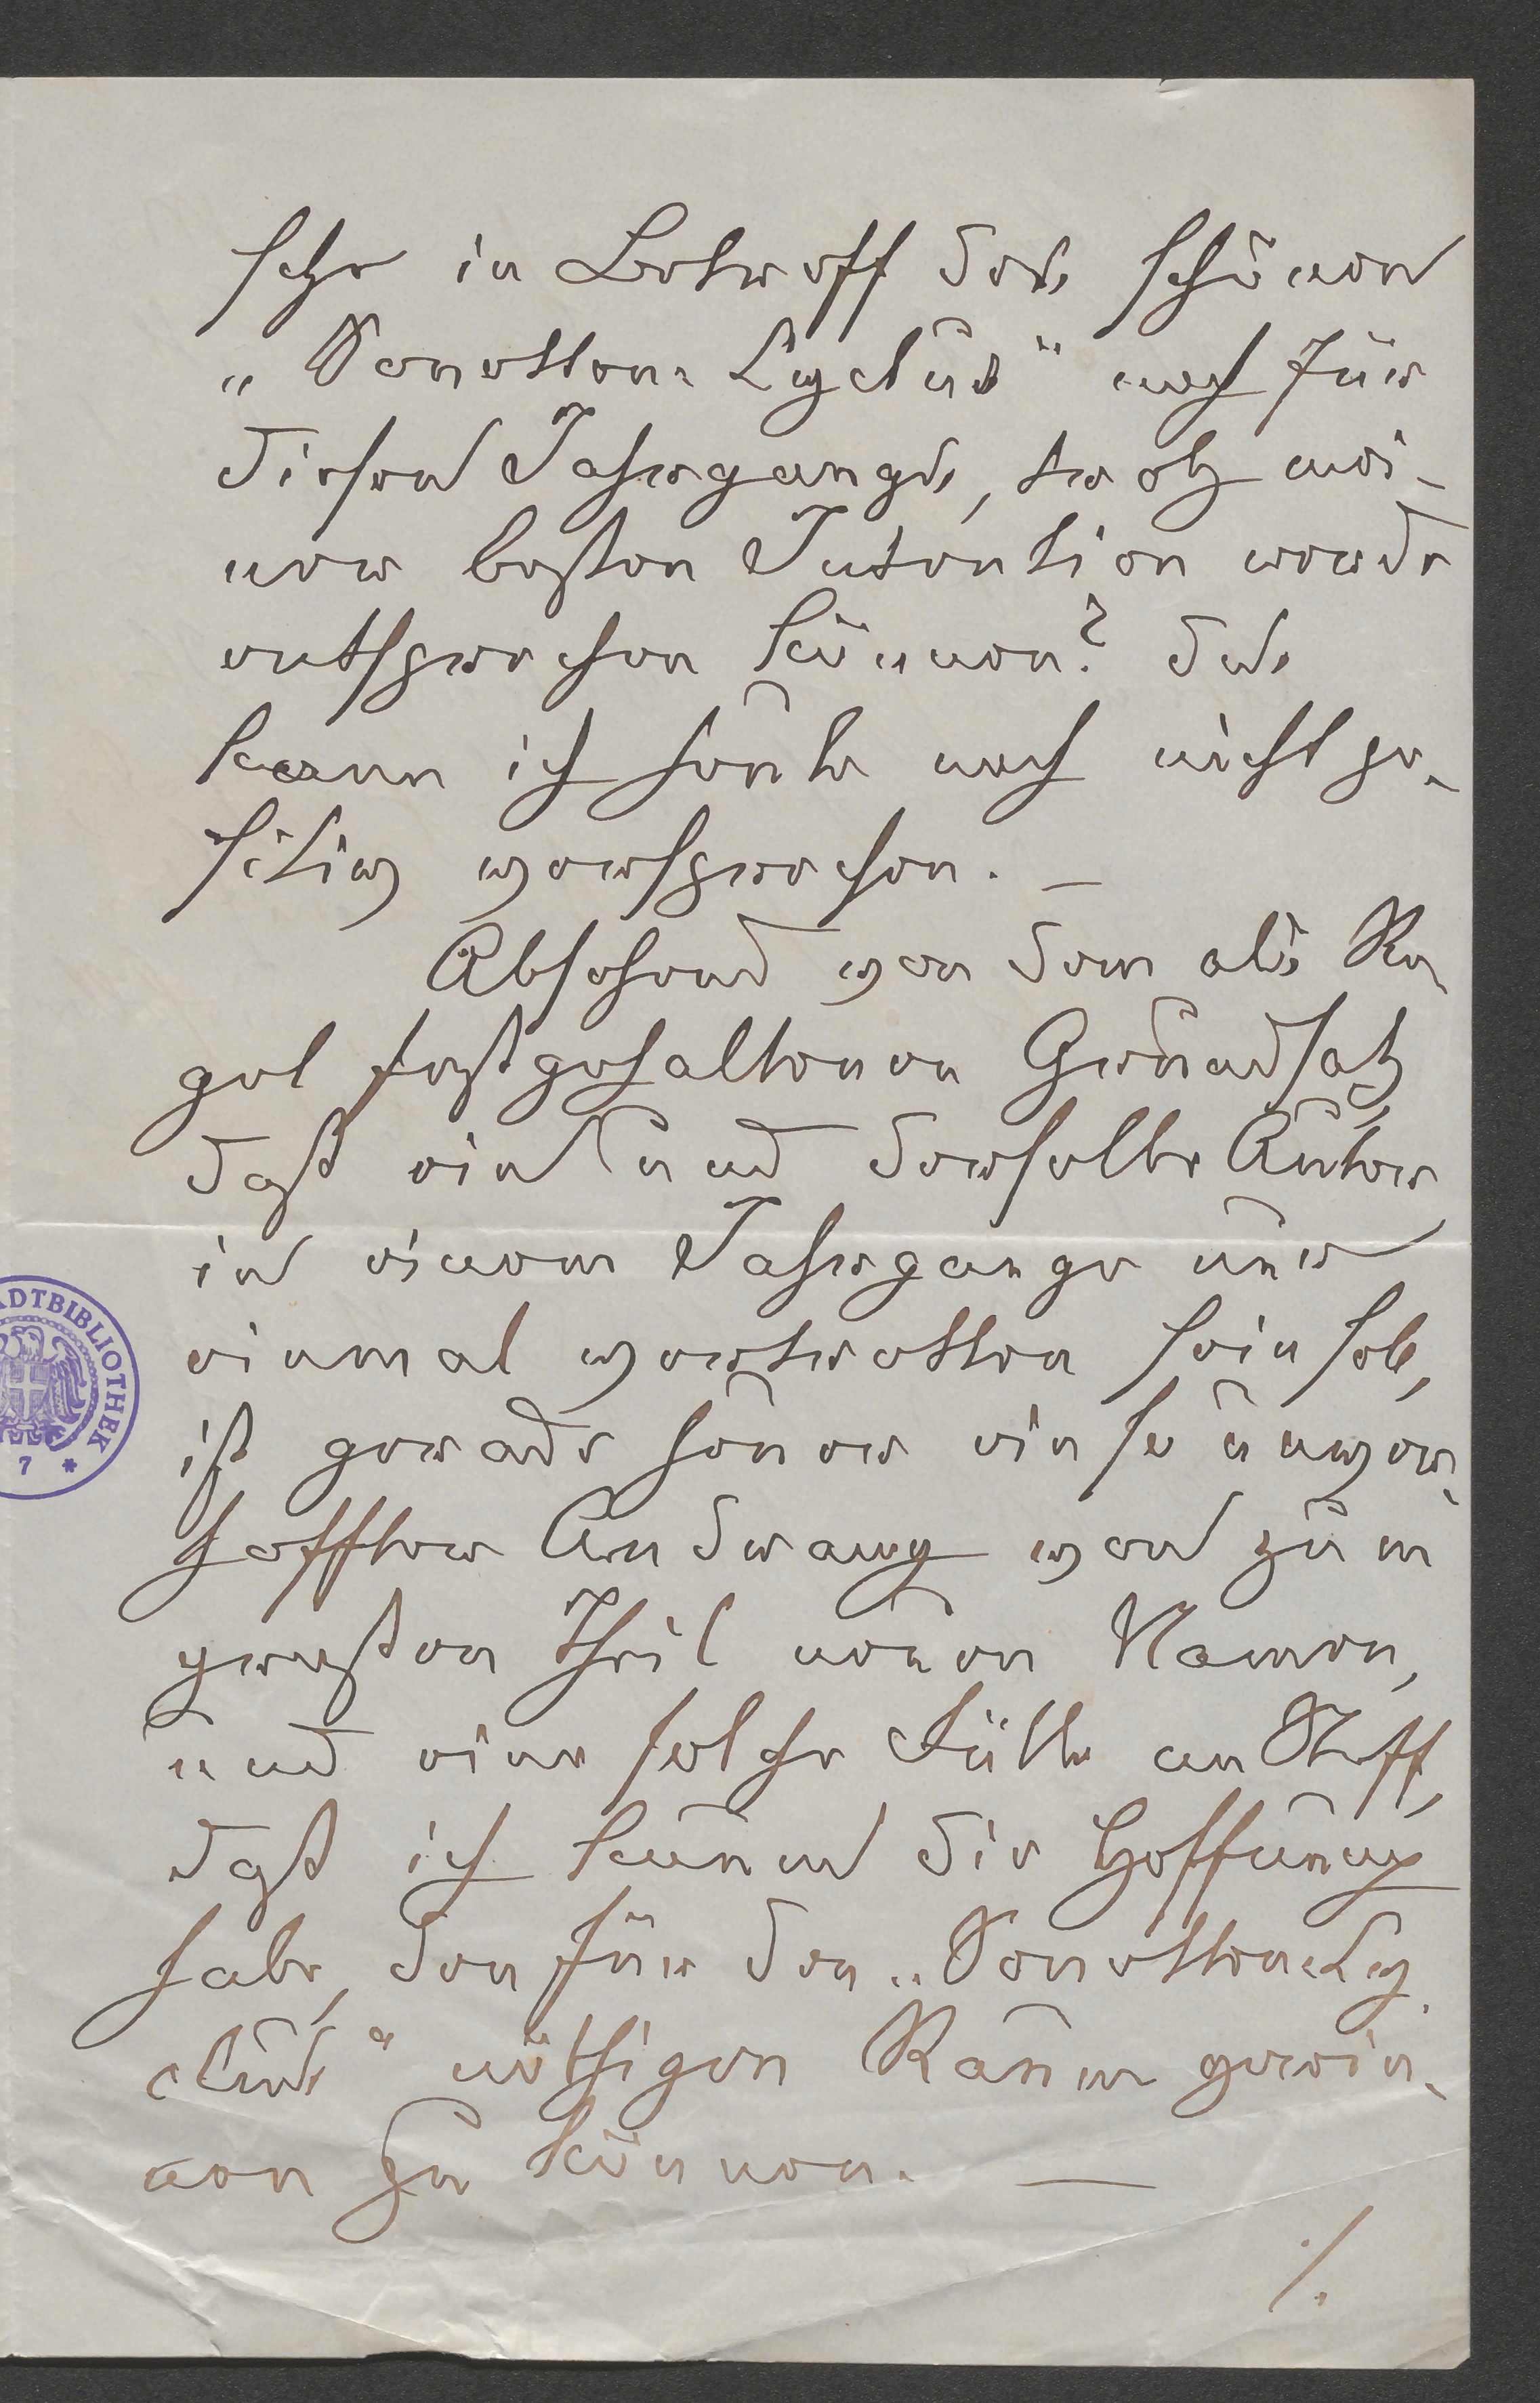 sche in Betreff des schönen
„Sonetten-Cyclus“ noch für
diesen Jahrgange, trotz mei-
ner besten Intention werde
entsprechen können? das
kann ich heute noch nicht po-
sitiv versprechen. —
Absehend von dem als Re-
gel festgehaltenen Grundsatz,
daß ein und derselbe Autor
in einem Jahrgange nur
einmal vertreten sein soll,
ist gerade heuer ein so unver-
hoffter Andrang von zum
großen Theil neuen Namen,
und eine solche Fülle an Stoff,
daß ich kaum die Hoffnung
habe, den für den „Sonetten-Cy-
clus“ nöthigen Raum gewin-
nen zu können. —
./.
STADTBIBLIOTHEK
7 *